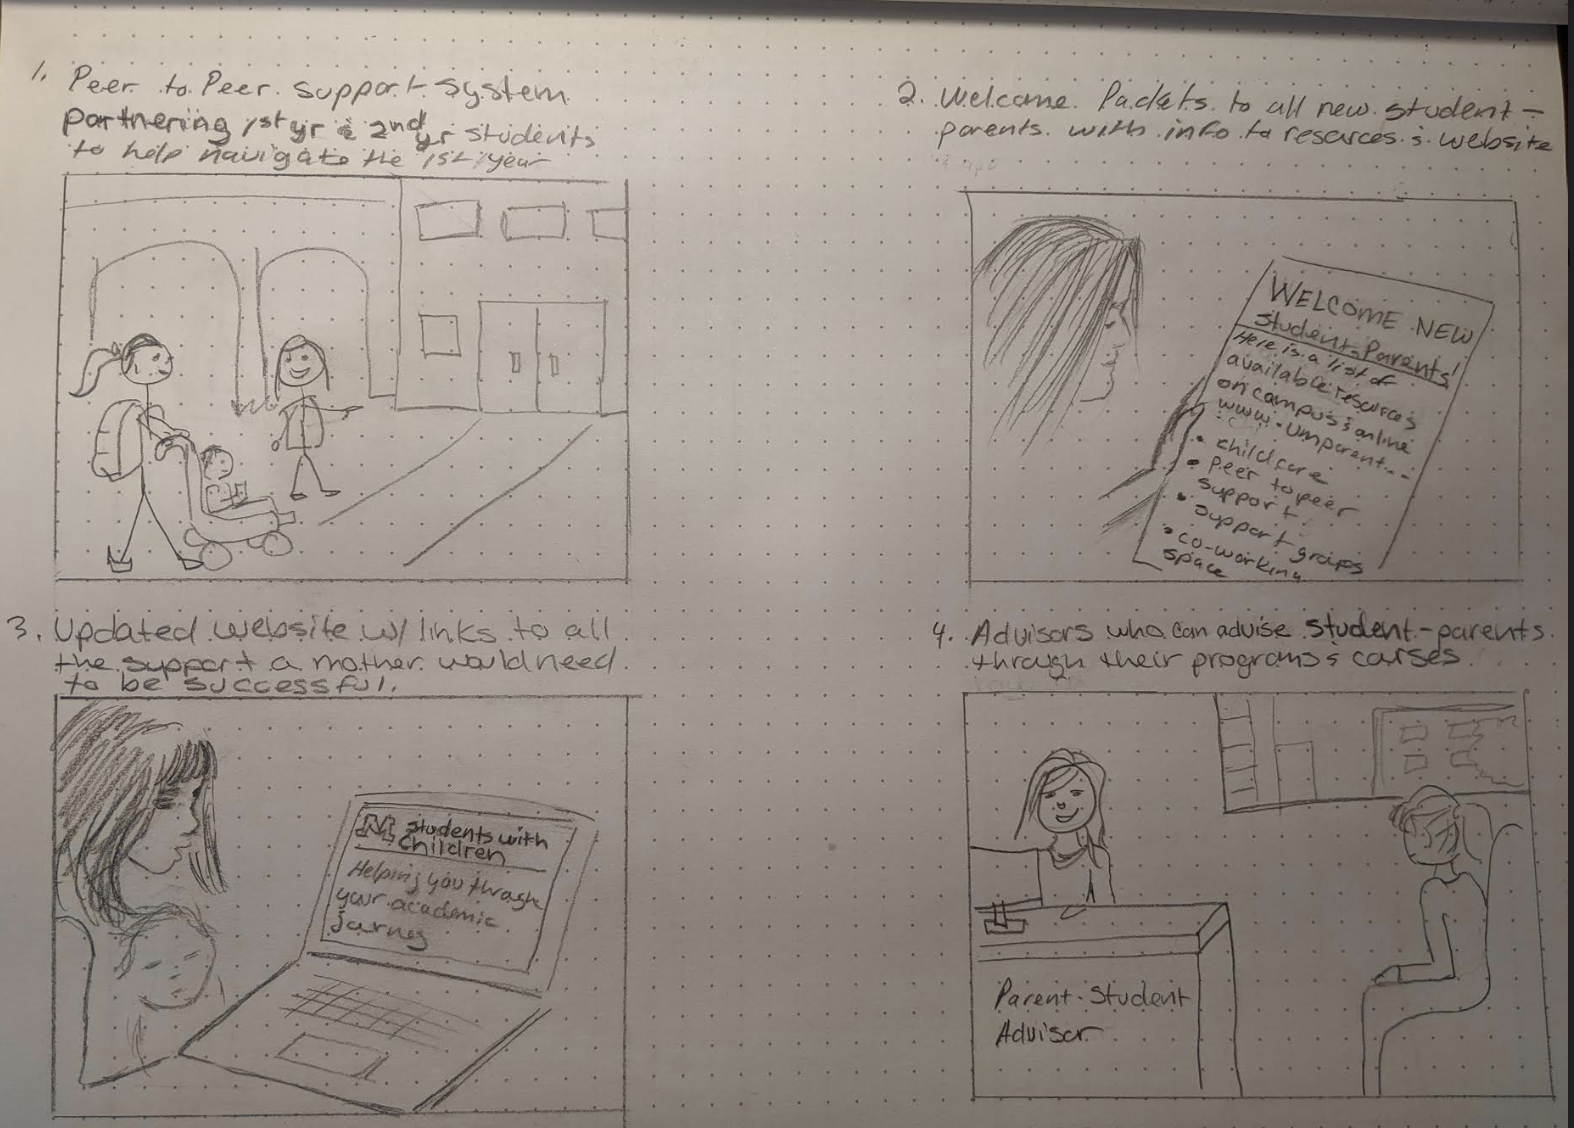 1. Peer to Peer support System
partnering 1st yr & 2nd yr students
to help navigate the 1st year
2. Welcome Packets to all new student-
parents with info to resources & website
WELCOME NEW
Students Parents!
Here is a list of
available resources
on campus & online
www.umparent...
• childcare
• Peer to peer
support
• support groups
• co-working
space
3. Updated website w/ links to all
the support a mother would need
to be successful.
M Students with
Children
Helping you through
your academic
Journey
4. Advisors who can advise student-parents
through their programs & courses
Parent-Student
Advisor